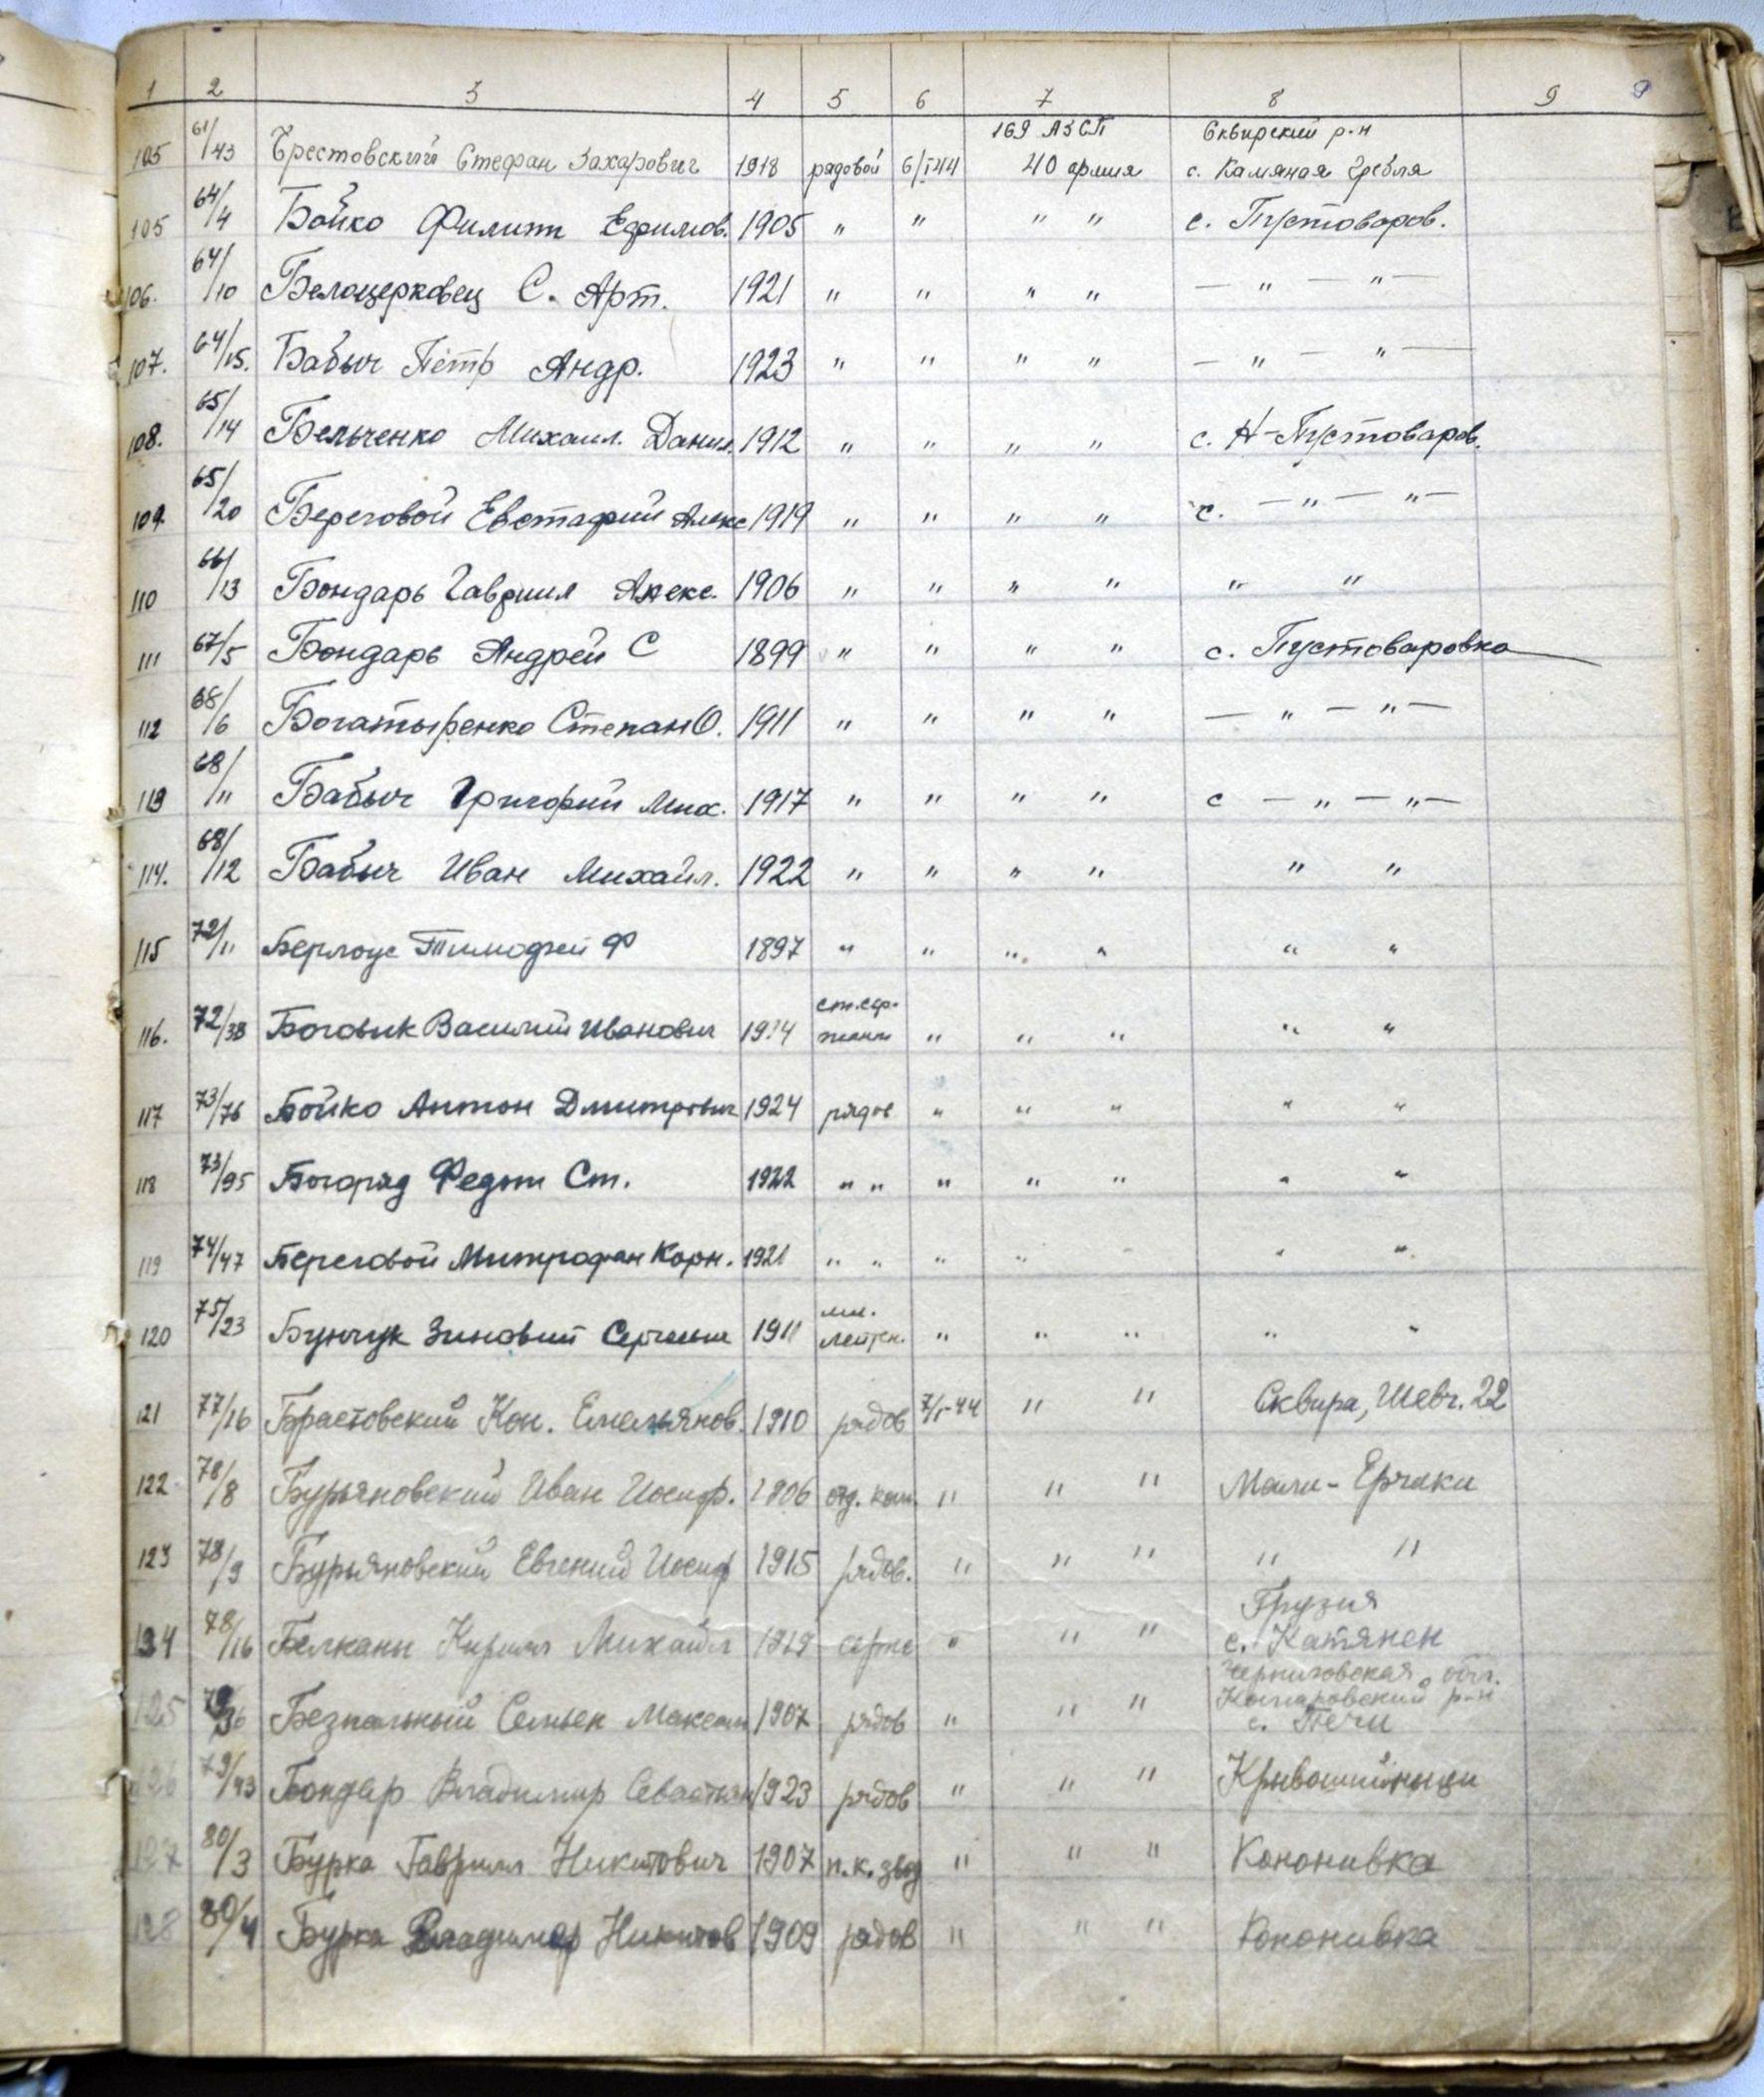 1 2 3 4 5 6 7 8 9 9
105 61/43 Брестовский Стефан Захарович 1918 рядовой 6/I 44 169 АЗСП 40 армия Сквирский р-н с. Камяная Гребля
105 64/4 Бойко Филипп Ефимов. 1905 " " " " с. Пустоваров.
106. 64/10 Белоцерковец С. Арт. 1921 " " " " — " — " —
107. 64/15. Бабыч Петр Андр. 1923 " " " " — " — " —
108. 65/14 Бельченко Михаил. Данил. 1912 " " " " с. Н-Пустоваров.
109. 65/20 Береговой Евстафий Алекс 1919 " " " " с. — " — " —
110 66/13 Бондарь Гавриил Алекс. 1906 " " " " " "
111 67/5 Бондарь Андрей С 1899 " " " " с. Пустоваровка
112 68/6 Богатыренко Степан О. 1911 " " " " — " — " —
113 68/11 Бабыч Григорий Мих. 1917 " " " " с — " — " —
114. 68/12 Бабыч Иван Михайл. 1922 " " " " " "
115 72/11 Берлоус Тимофей Ф 1897 " " " " " "
116. 72/38 Боговик Василий Иванович ст. сер-жант " " " " "
117 73/76 Бойко Антон Дмитрович 1924 рядов " " " " "
118 73/95 Богорад Федот Ст. 1922 " " " " " " "
119 74/47 Береговой Митрофан Корн. 1921 " " " " " " "
120 75/23 Бунчук Зиновий Сергеевич 1911 мл. лейтен. " " " " "
121 77/16 Брастовский Кон. Емельянов. 1910 рядов 7/I-44 " " Сквира, Шевч. 22
122 78/8 Бурьяновский Иван Иосиф. 1906 отд. ком. " " " Мали-Ерчики
123 78/9 Бурьяновский Евгений Иосиф 1915 рядов. " " " " "
124 78/16 Белканы Кирилл Михайл 1919 серже " " " Грузия с. Катянен
125 Безпальный Семьен Максим 1907 рядов " " " Черниговская обл. Комаровский р-н с. Печи
126 79/43 Бондар Владимир Севастьян 1923 рядов " " " Кривошийныци
127 80/3 Бурка Гаврилл Никитович 1907 п.к.звод " " " Кононивка
128 80/4 Бурка Владимир Никитов 1909 рядов " " " Кононивка